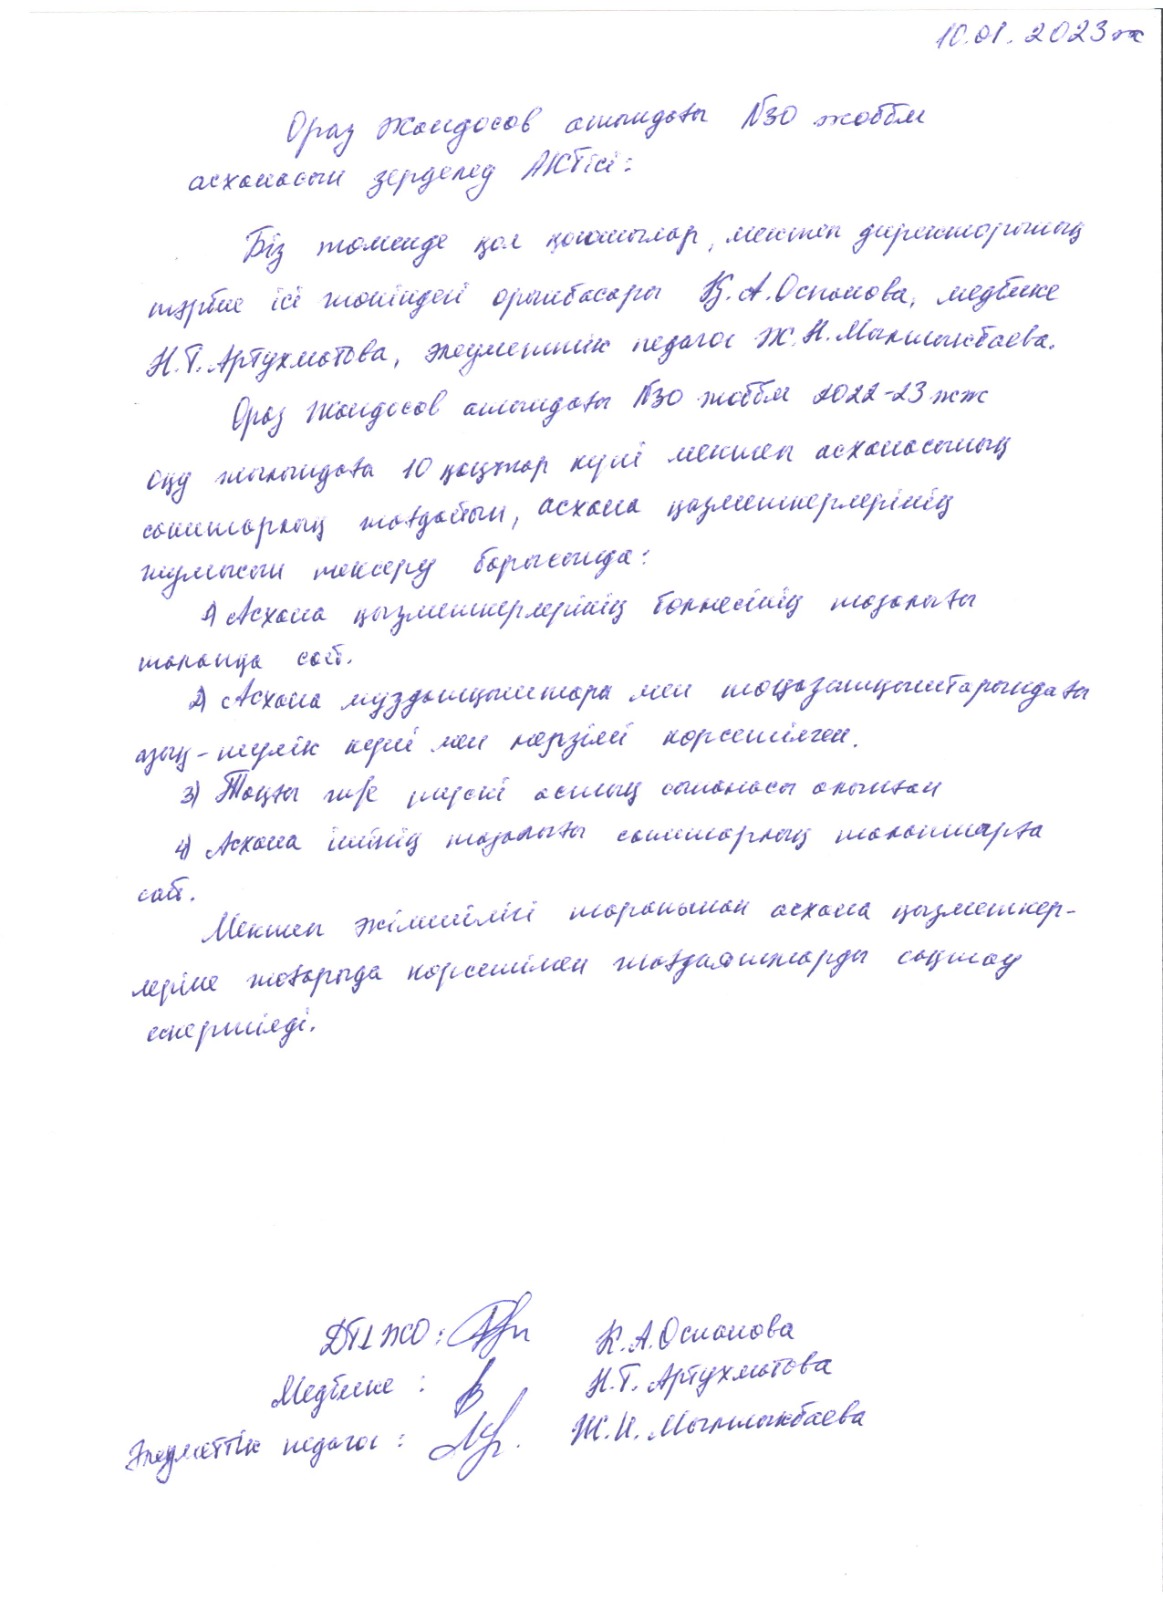 10.01.2023ж
Ораз Жандосов атындағы №30 жоббм
асханасын зерделеу АКТісі:
Біз төменде қол қоюшылар, мектеп директорының
тәрбие ісі жөніндегі орынбасары К.А.Оспанова, медбике
Н.Т.Артухметова, әлеуметтік педагог Ж.Н.Мылтықбаева.
Ораз Жандосов атындағы №30 жоббм 2022-23жж
оқу жылындағы 10 қаңтар күні мектеп асханасының
санитарлық жағдайын, асхана қызметкерлерінің
жұмысын тексеру барысында:
1) Асхана қызметкерлерінің бөлмесінің тазалығы
талапқа сай.
2) Асхана мұздатқыштары мен тоңазытқыштарындағы
азық-түлік күні мен мерзімі көрсетілген.
3) Таңғы және түскі астың сынамасы алынған
4) Асхана ішінің тазалығы санитарлық талаптарға
сай.
Мектеп әкімшілігі тарапынан асхана қызметкер-
леріне жоғарыда көрсетілген жағдаяттарды сақтау
ескертілді.
ДТІЖО: К.А.Оспанова
Медбике: Н.Т.Артухметова
Әлеуметтік педагог: Ж.Н.Мылтықбаева